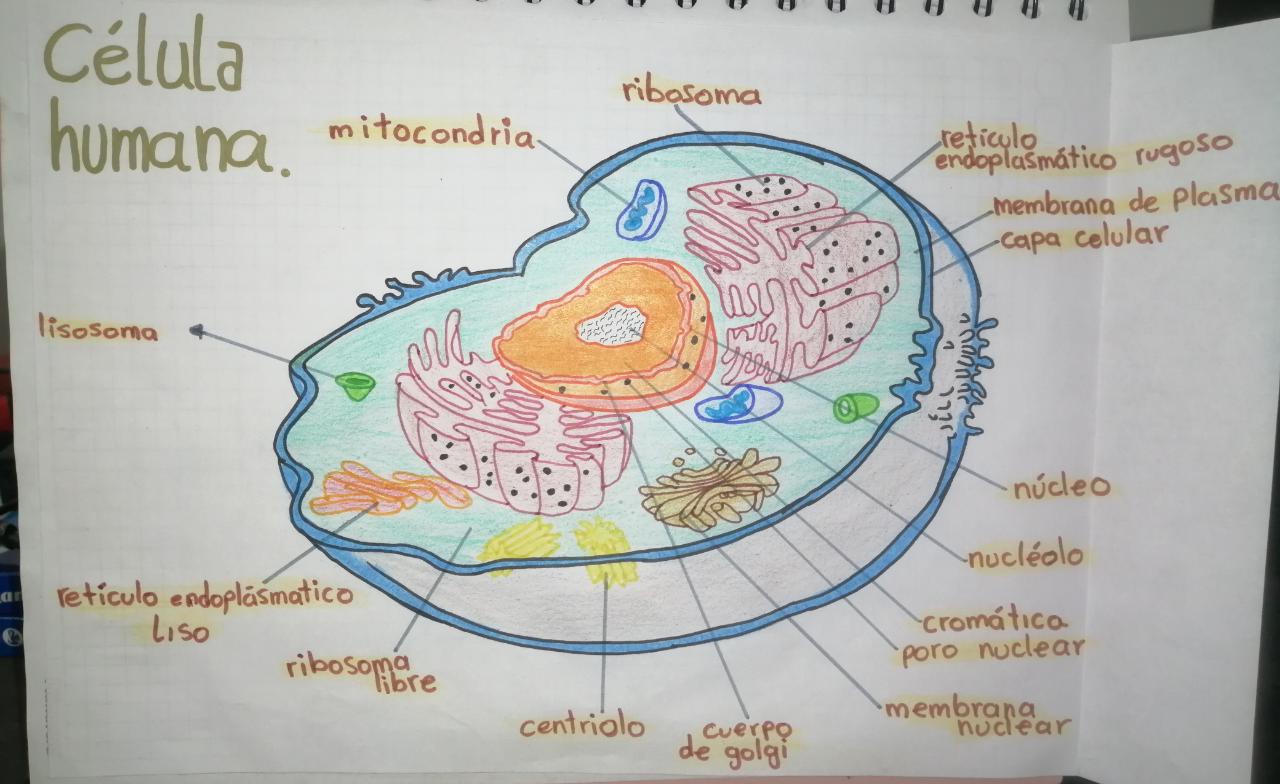 Célula
humana.
ribosoma
mitocondria
retículo
endoplasmático rugoso
membrana de plasma
capa celular
lisosoma
núcleo
nucléolo
cromática
poro nuclear
membrana
nuclear
cuerpo
de golgi
centriolo
ribosoma
libre
retículo endoplásmatico
liso